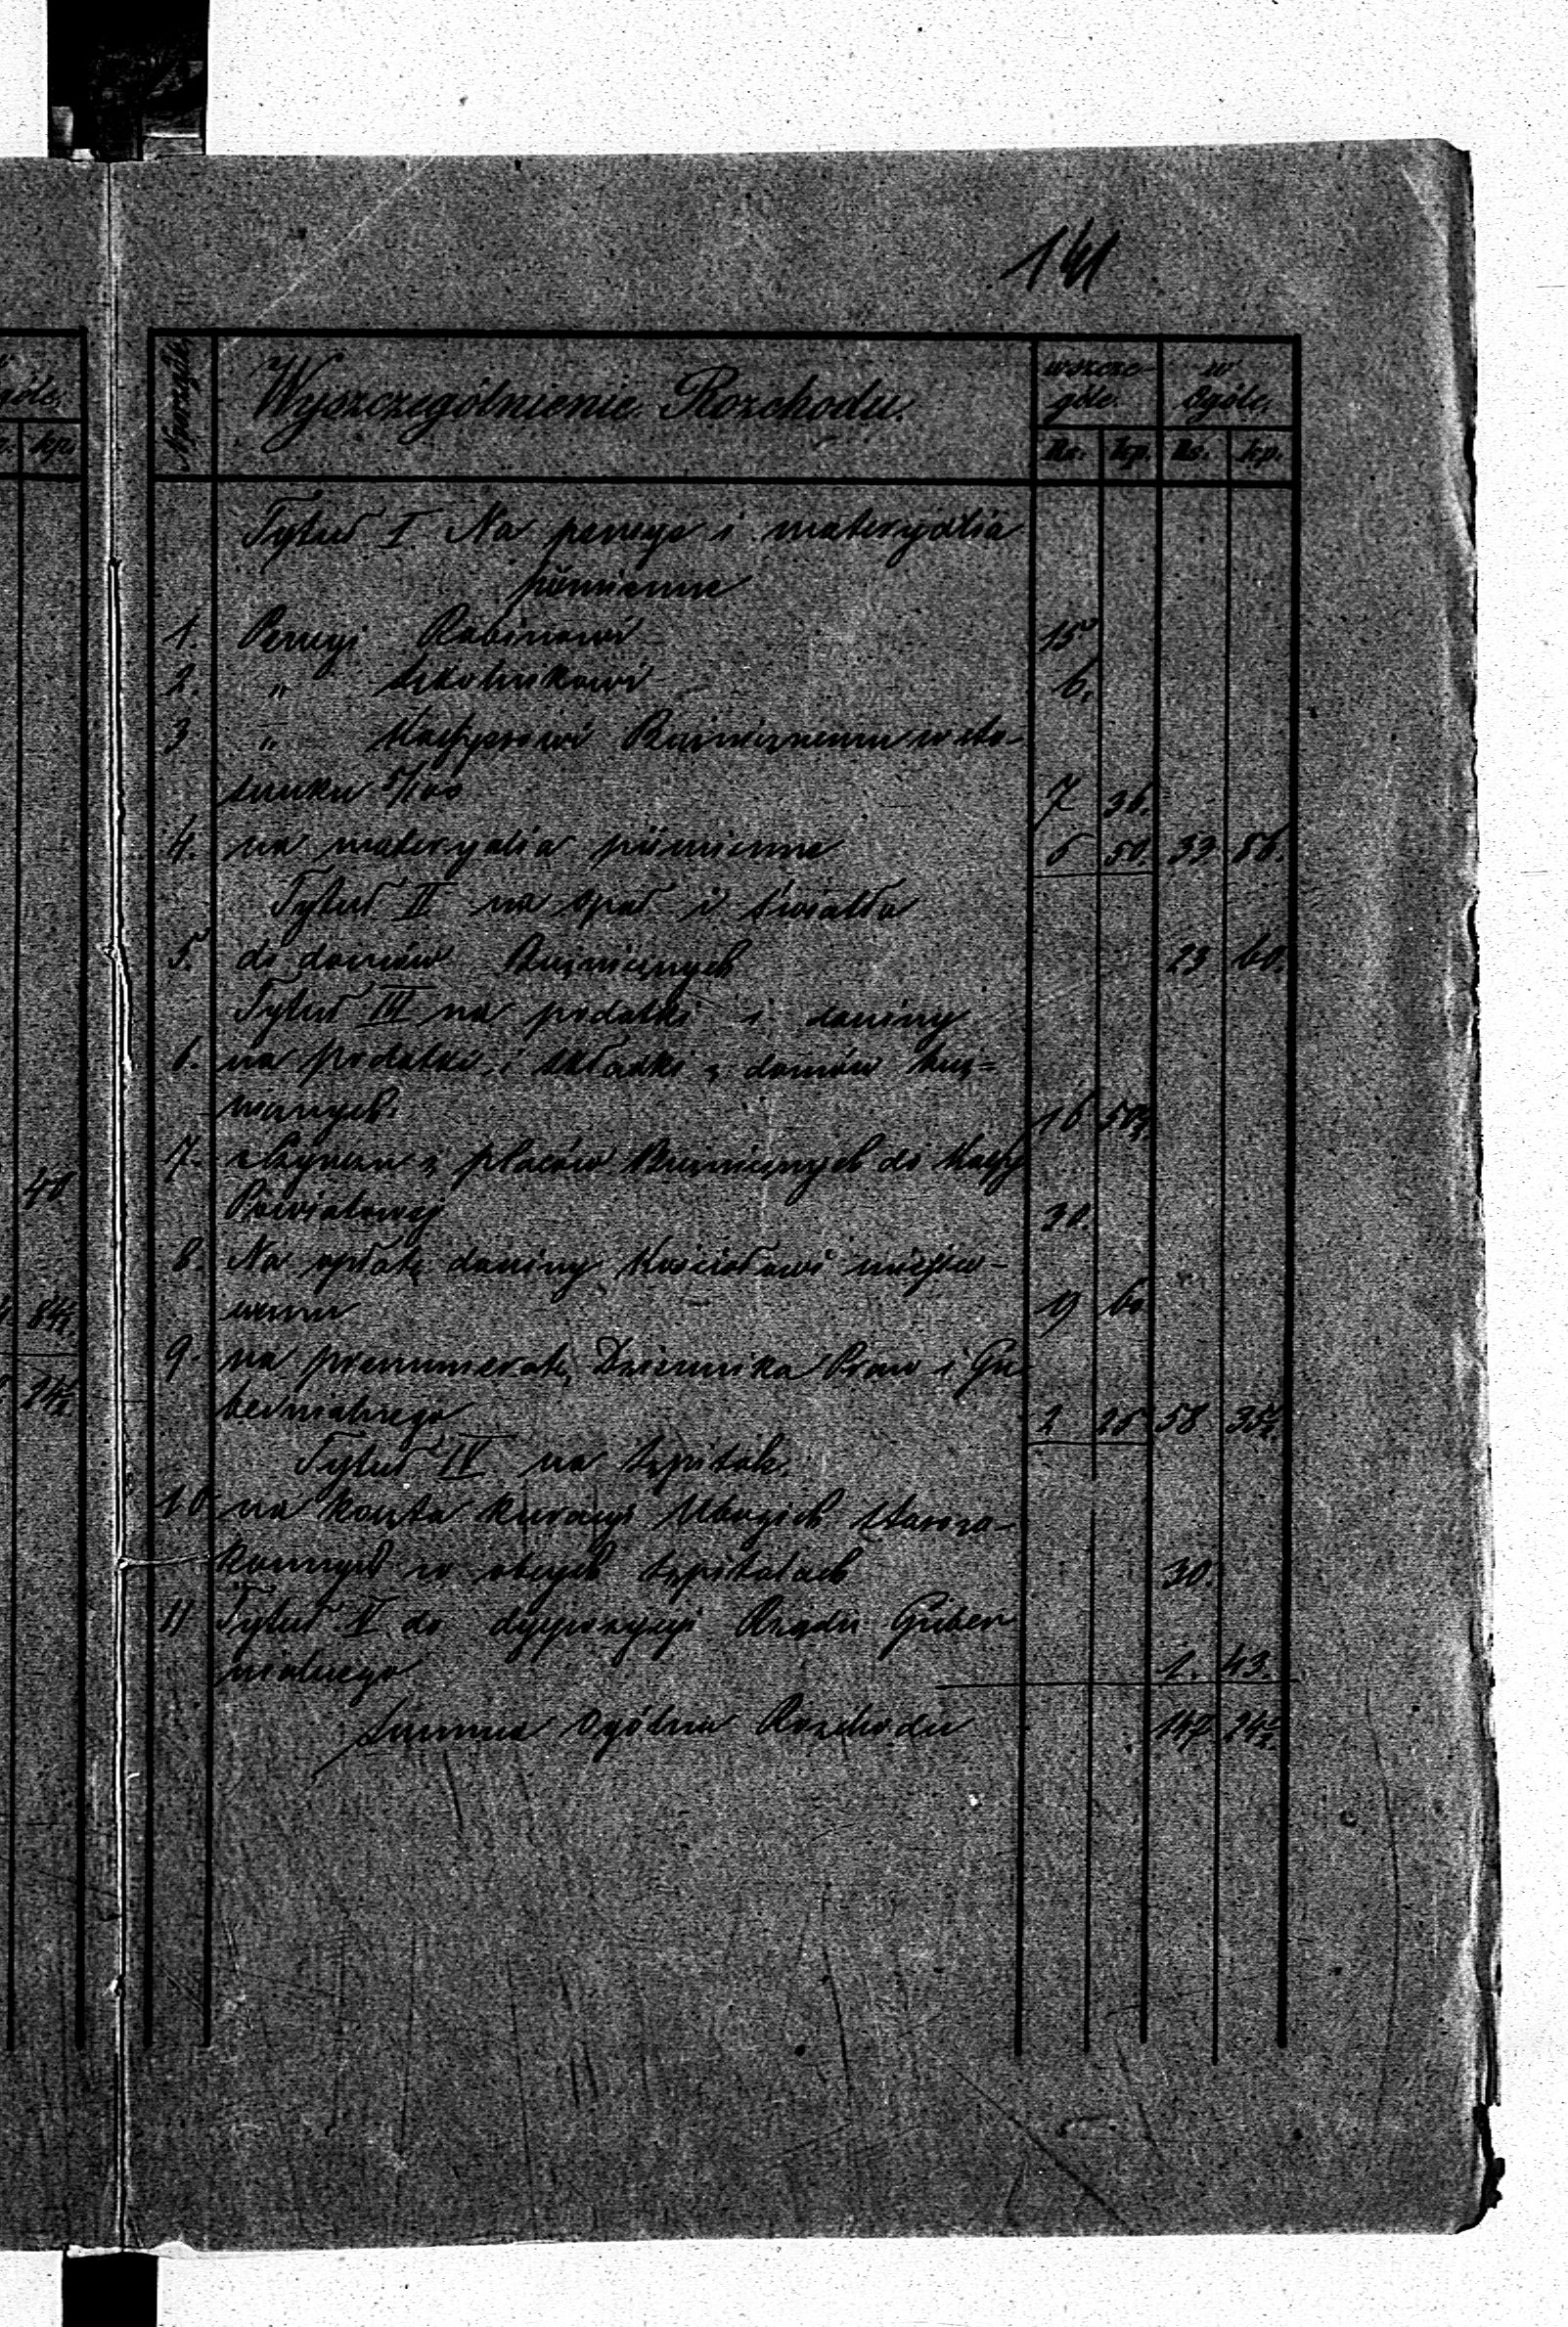 141
Nr porządk.
Wyszczególnienie Rozchodu.
wszcze- w
góle. Ogóle.
Rs. kp. Rs. kp.
Tytuł I Na pensye i materyalia
piśmienne
1. Pensyi Rabinowi 15
2. " Szkolnikowi 6.
3 " Kassyerowi Bużnicznemu w sto-
sunku 5/100 7 36.
4. na materyalia piśmienne 5 50. 33 86.
Tytuł II na opał i światło
5. do domów Bużnicznych 23 60.
Tytuł III na podatki i daniny
6. na podatki i składki z domów buż-
nicznych. 16 50½
7. Czynszu z placów Bużnicznych do Kassy
Powiatowej 30.
8. Na opłatę daniny Kościołowi miejsco-
wemu 19 60
9. na prenumeratę Dziennika Praw i Gu
bernialnego 2 25 58 35½
Tytuł IV na szpitale.
10 na koszta kuracyi Ubogich Staroza-
konnych w obcych szpitalach 30.
11 Tytuł V do dyspozycyi Rządu Guber
nialnego 1. 43.
Summa Ogólna Rozchodu 147 24½
góle.
kp.
40
84½
24½